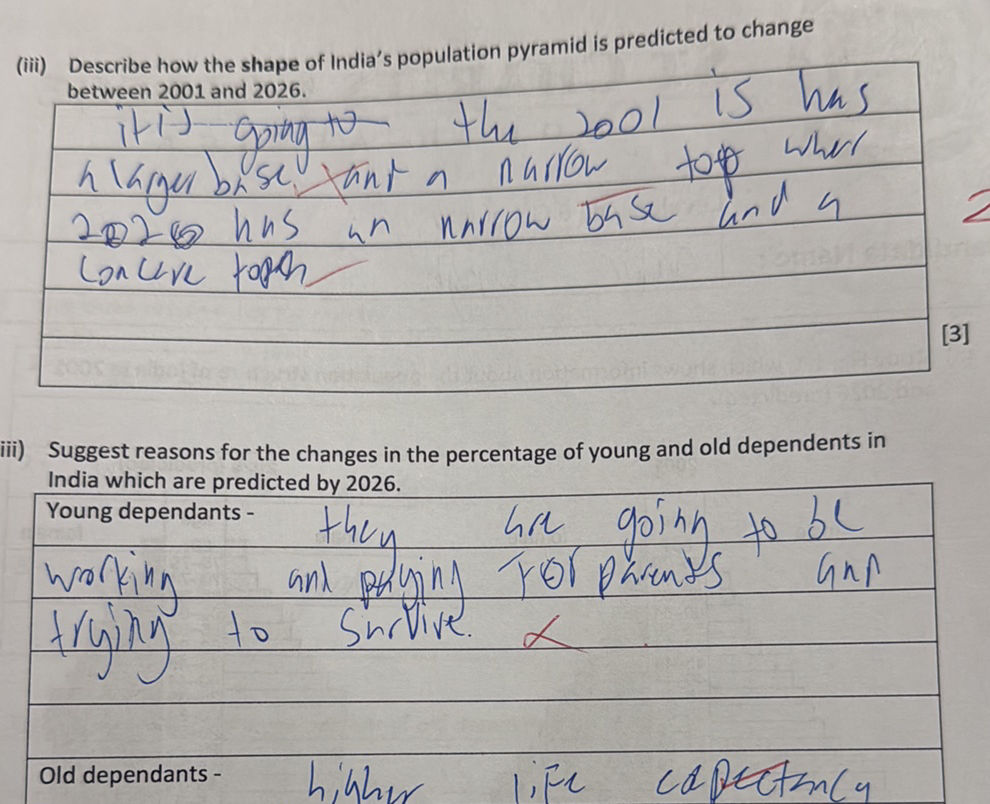 (iii) Describe how the shape of India's population pyramid is predicted to change
between 2001 and 2026.
it is going to the 2001 is has
a larger base and a narrow top wher
2026 has an narrow base and a
2
concave
[3]
iii) Suggest reasons for the changes in the percentage of young and old dependents in
India which are predicted by 2026.
Young dependants - they are going to be
working and paying for parents and
trying to survive.
Old dependants - higher life expectancy